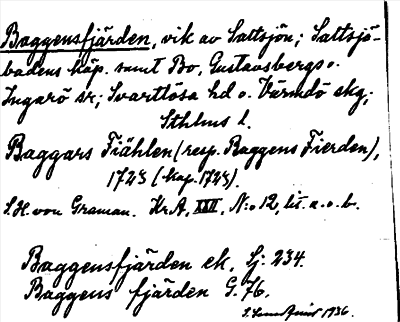 Baggensfjärden, vik av Saltsjön; Saltsjö-
badens köp. samt Bo, Gustavsbergs o.
Ingarö sr; Svartlösa hd o. Värmdö skg;
Sthlms l.
Baggars Fiählen (resp. Baggens Fierden),
1723 (kop. 1723).
S.H. von Graman. Kr.A, XXII, N:o 12, lit. a. o. b.
Baggensfjärden ek. Sj: 234.
Baggens fjärden G. 76.
1936.